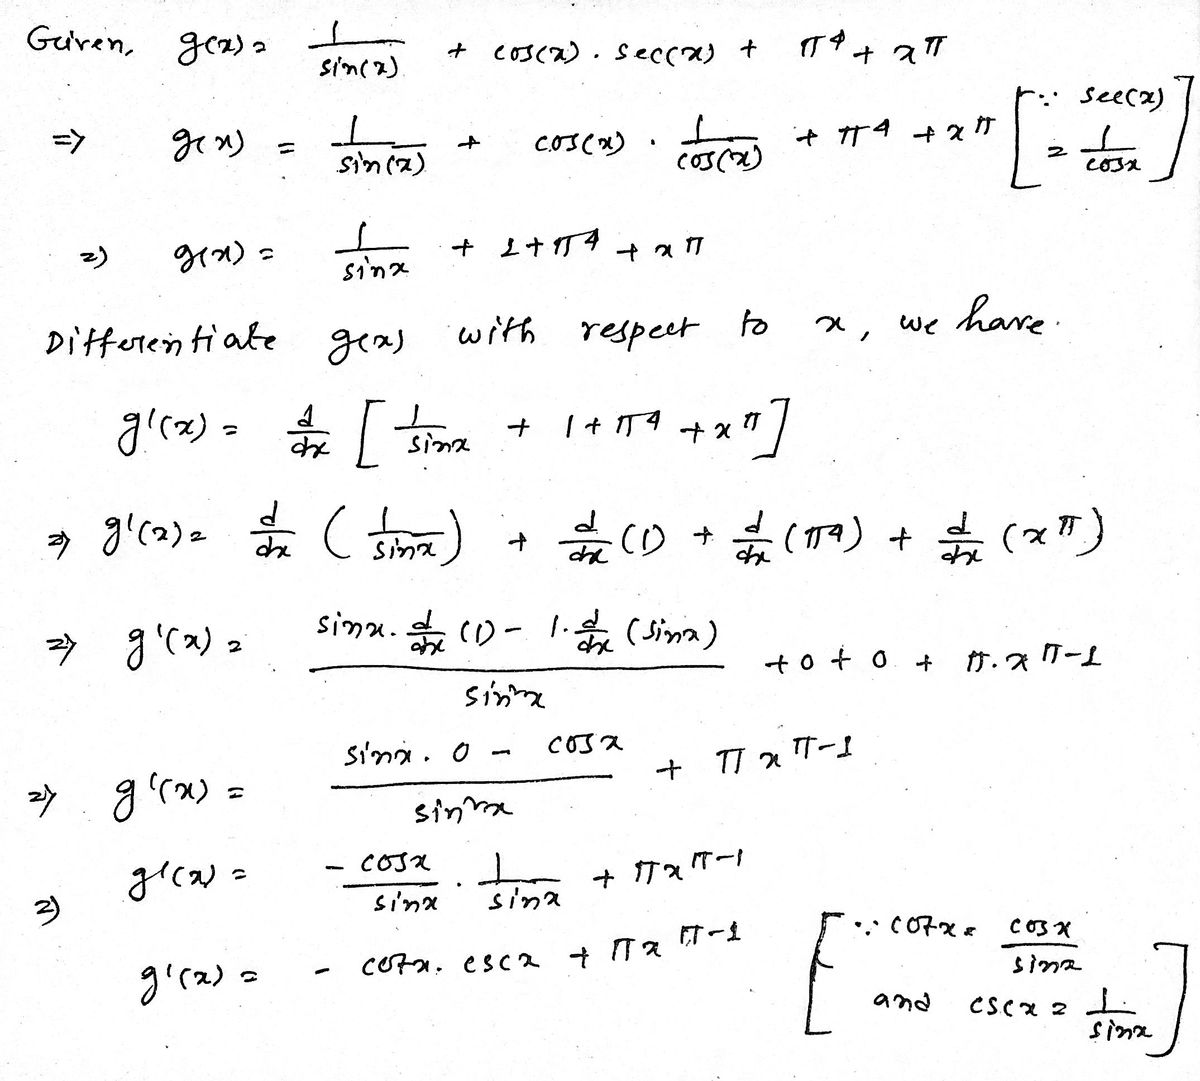 Given, g(x) = 1/sin(x) + cos(x) . sec(x) + π^4 + x^π
=> g(x) = 1/sin(x) + cos(x) . 1/cos(x) + π^4 + x^π [∵ sec(x) = 1/cosx]
=> g(x) = 1/sinx + 1 + π^4 + x^π
Differentiate g(x) with respect to x, we have.
g'(x) = d/dx [1/sinx + 1 + π^4 + x^π]
=> g'(x) = d/dx (1/sinx) + d/dx (1) + d/dx (π^4) + d/dx (x^π)
=> g'(x) = (sinx . d/dx (1) - 1 . d/dx (sinx))/sin²x + 0 + 0 + π . x^(π-1)
=> g'(x) = (sinx . 0 - cosx)/sin²x + πx^(π-1)
=> g'(x) = -cosx/sinx . 1/sinx + πx^(π-1)
g'(x) = - cotx . cscx + πx^(π-1) [∵ cotx = cosx/sinx and cscx = 1/sinx]